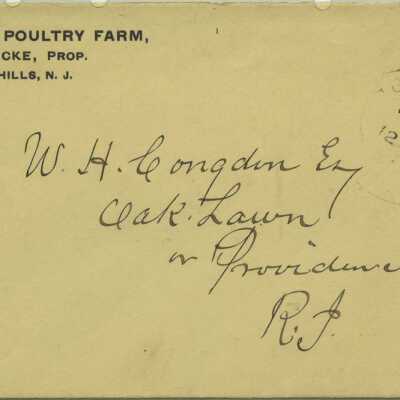 POULTRY FARM,
CKE, PROP.
HILLS, N. J.
W. H. Congdon Esq
Oak Lawn
or Providence
R. I.
12